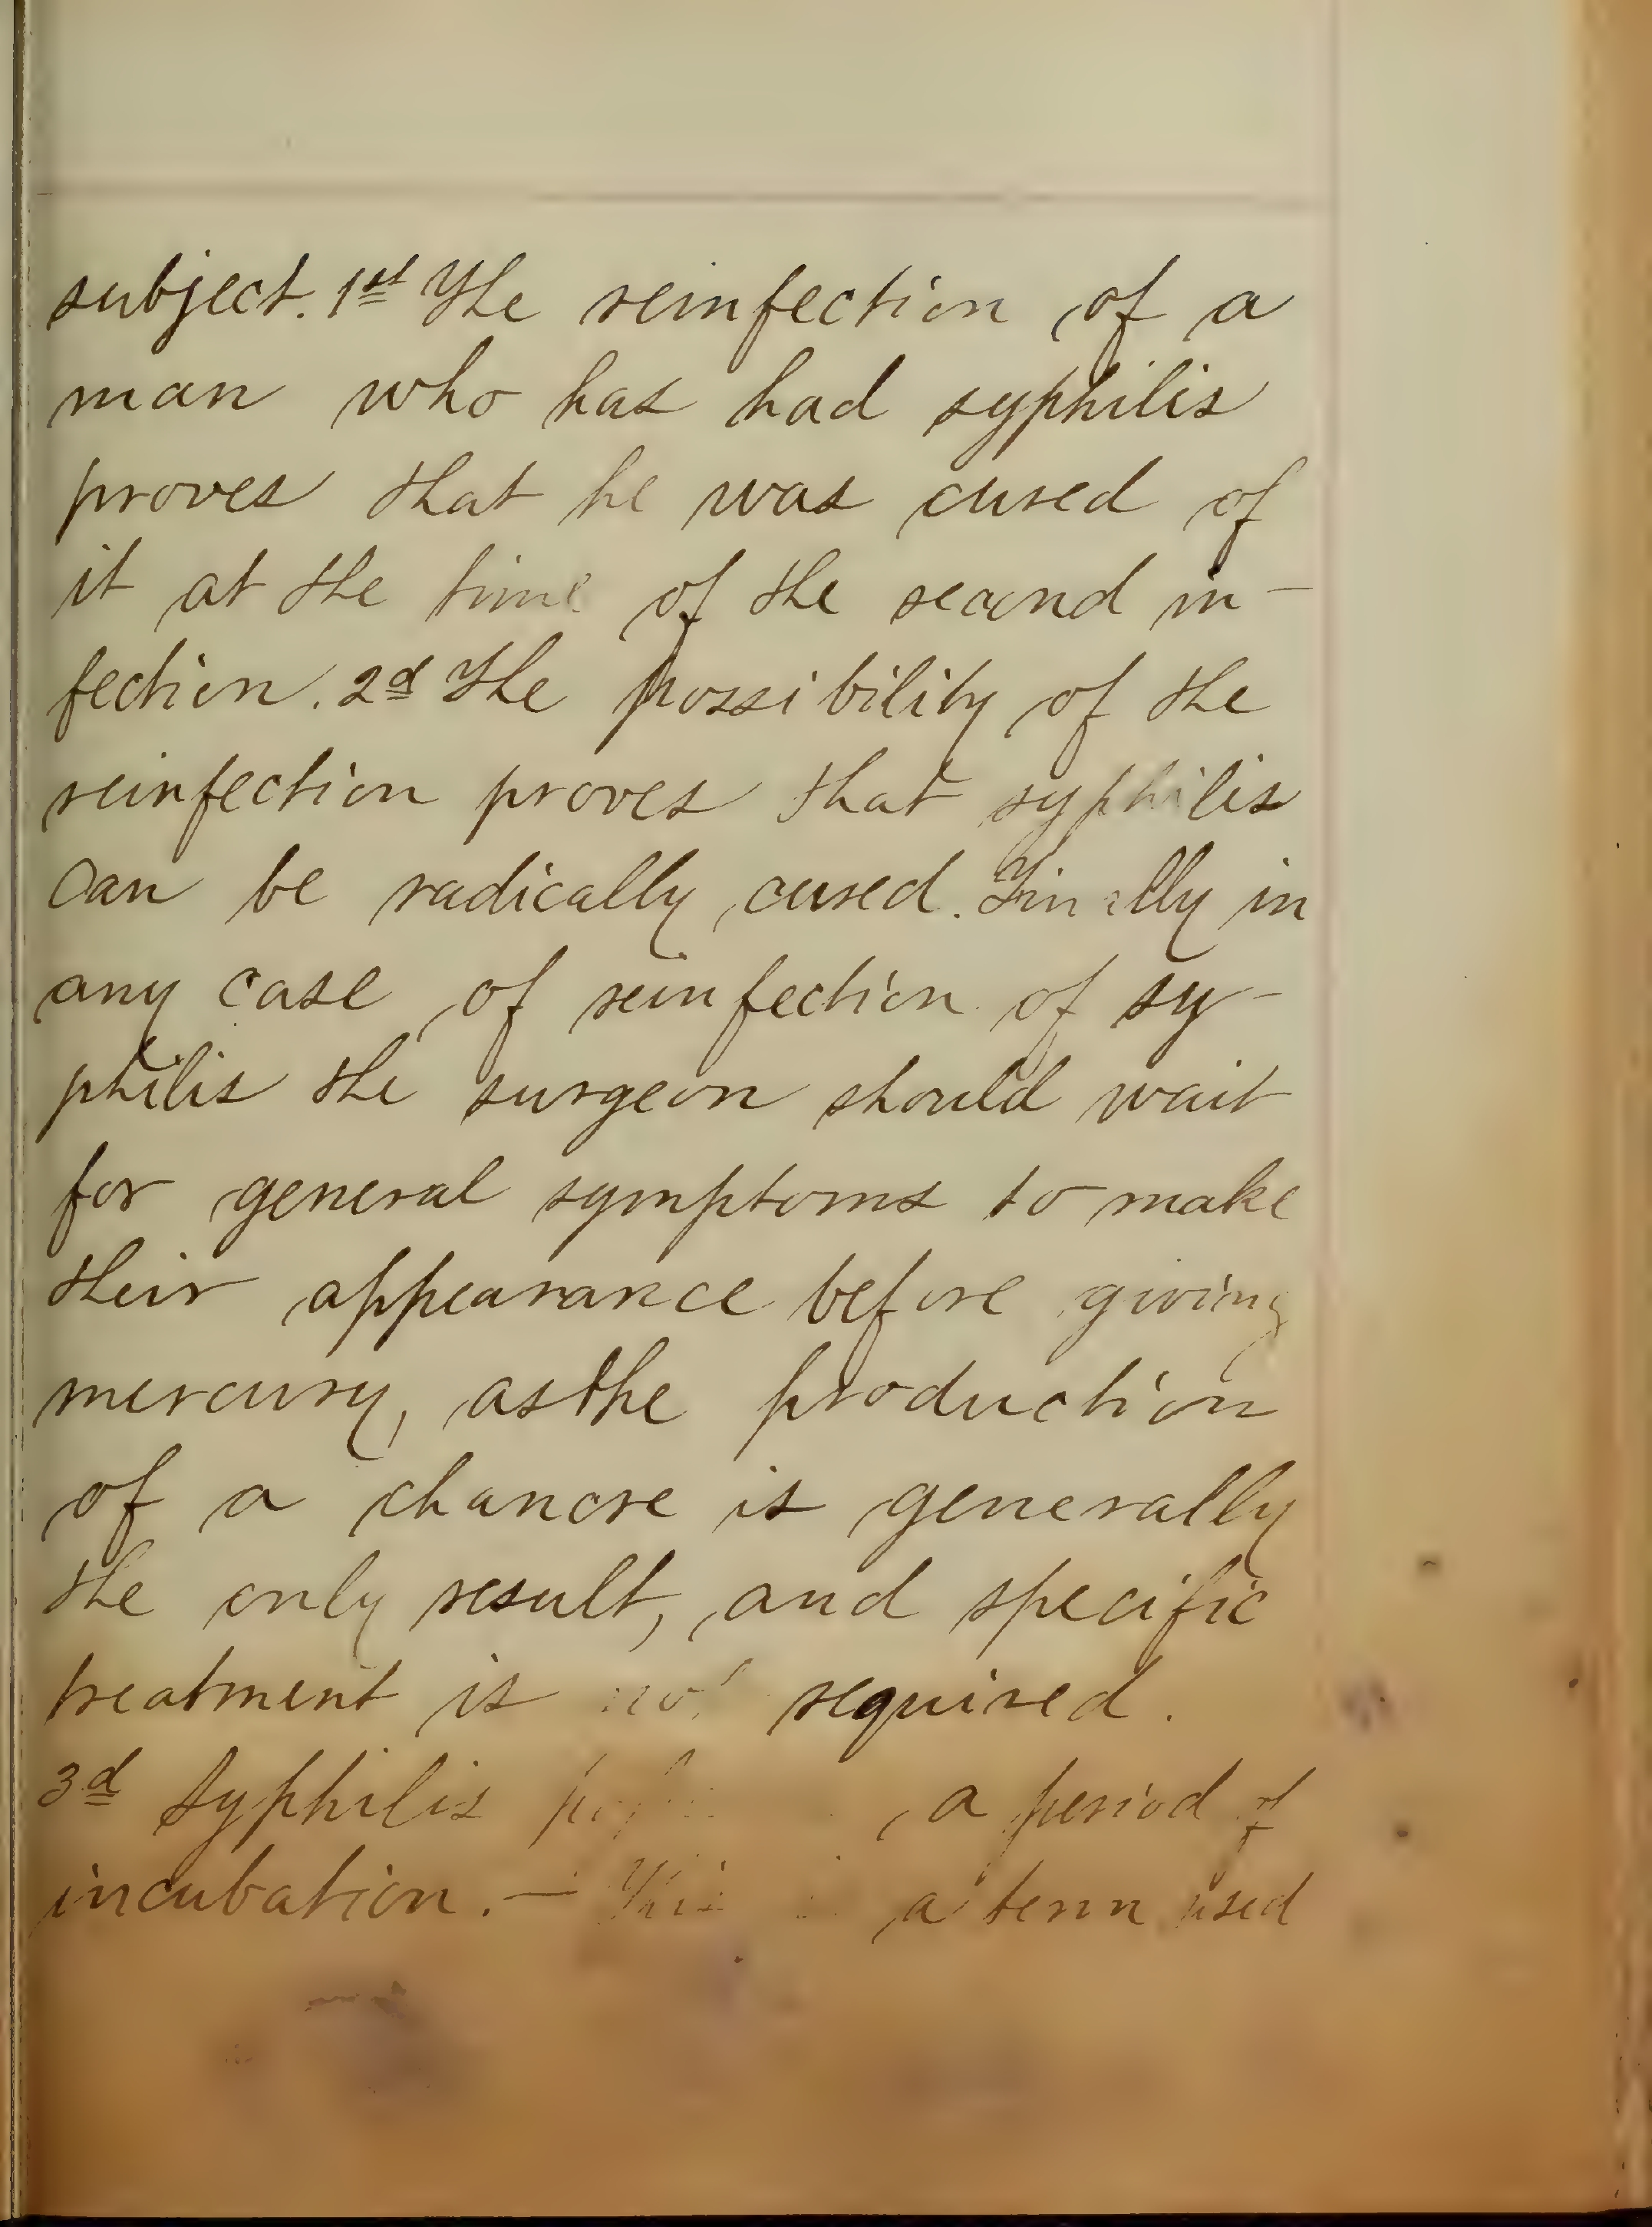 subject. 1st The reinfection of a
man who has had syphilis
proves that he was cured of
it at the time of the second in-
fection. 2d The possibility of the
reinfection proves that syphilis
Can be radically cured. Finally in
any case of reinfection of sy-
philis the surgeon should wait
for general symptoms to make
their appearance before giving
mercury, as the production
of a chancre is generally
the only result, and specific
treatment is not required.
3d Syphilis a period of
incubation. — This a term used